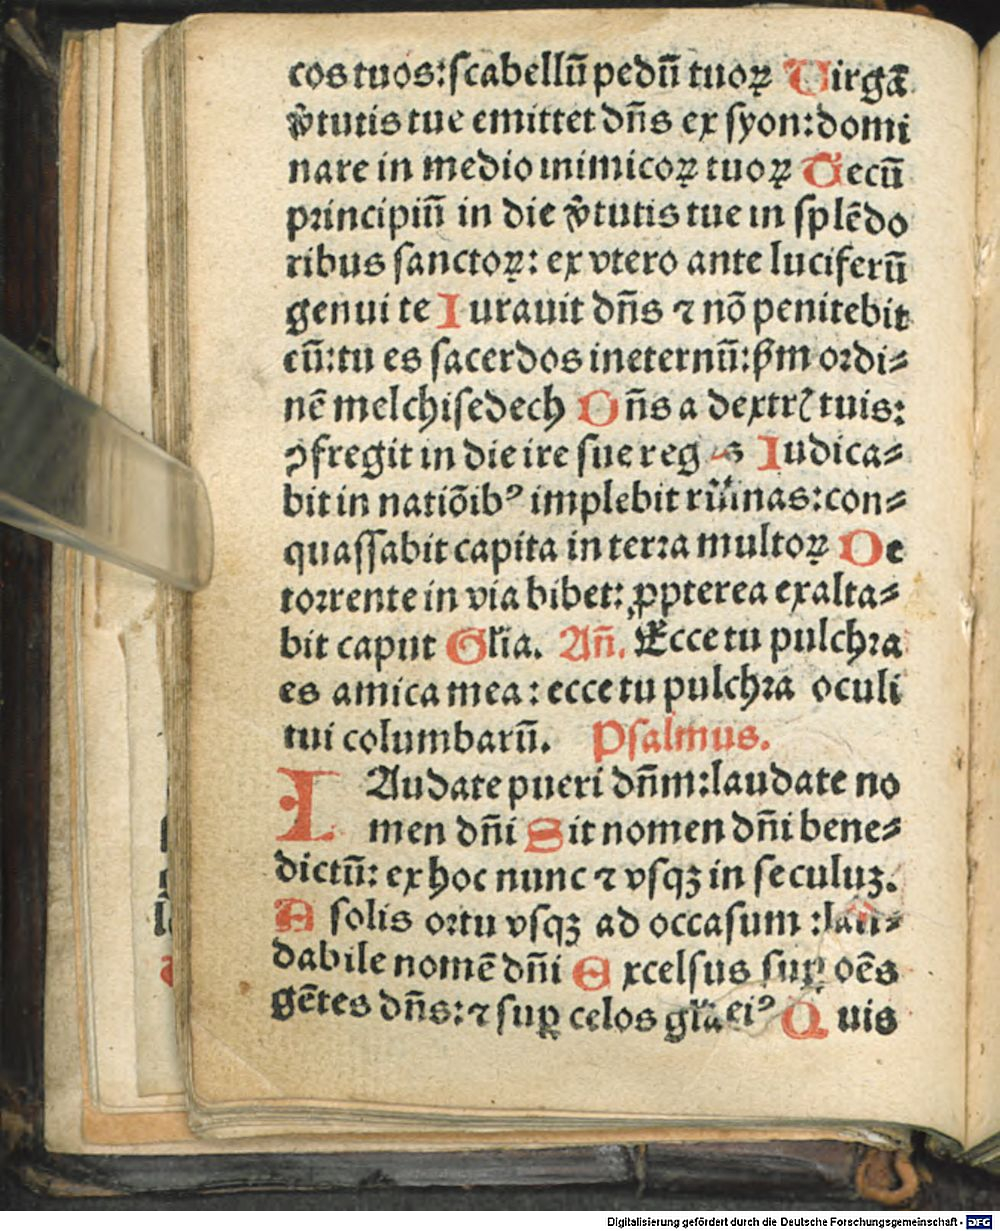 cos tuos: scabellū pedū tuoꝝ Uirgā
v̓tutis tue emittet dn̄s ex syon: domi
nare in medio inimicoꝝ tuoꝝ Tecū
principiū in die v̓tutis tue in splēdo
ribus sanctoꝝ: ex vtero ante luciferū
genui te Iurauit dn̄s ⁊ nō penitebit
eū: tu es sacerdos in eternū: ẜm ordi⸗
nē melchisedech Dn̄s a dextrꝭ tuis:
ꝯfregit in die ire sue reges Iudica⸗
bit in natiōibꝰ implebit ruinas: con⸗
quassabit capita in terra multoꝝ De
torrente in via bibet: ꝓpterea exalta⸗
bit caput Gl̓ia. An̄. Ecce tu pulchra
es amica mea: ecce tu pulchra oculi
tui columbarū. Psalmus.
LAudate pueri dn̄m: laudate no
men dn̄i Sit nomen dn̄i bene⸗
dictū: ex hoc nunc ⁊ vsqꝫ in seculuꝫ.
A solis ortu vsqꝫ ad occasum: lau⸗
dabile nomē dn̄i Excelsus suꝑ oēs
gētes dn̄s: ⁊ suꝑ celos gl̓a eiꝰ Quis
Digitalisierung gefördert durch die Deutsche Forschungsgemeinschaft - DFG